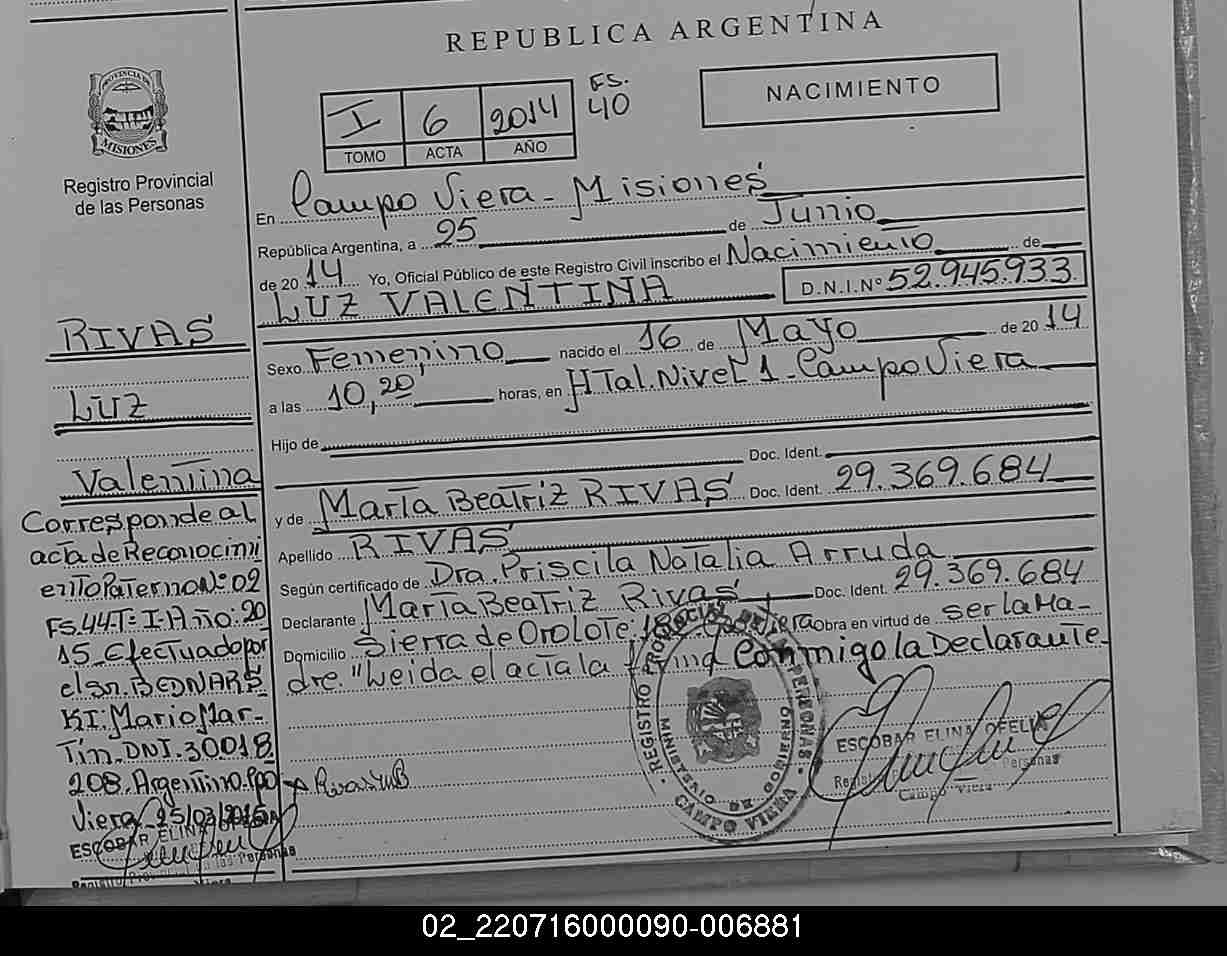 REPUBLICA ARGENTINA
PROVINCIA DE
MISIONES
Registro Provincial
de las Personas
I 6 2014 FS. 40
TOMO ACTA AÑO
NACIMIENTO
En Campo Viera - Misiones
República Argentina, a 25 de Junio
de 2014 Yo, Oficial Público de este Registro Civil inscribo el Nacimiento de
LUZ VALENTINA D.N.I.Nº 52.945.933
Sexo Femenino nacido el 16 de Mayo de 2014
a las 10,20' horas, en HTal. Nivel 1 - Campo Viera
Hijo de
Doc. Ident.
y de María Beatriz RIVAS Doc. Ident. 29.369.684
Apellido RIVAS
Según certificado de Dra. Priscila Natalia Arruda
Declarante María Beatriz Rivas Doc. Ident. 29.369.684
Domicilio Sierra de Oro Lote: Obra en virtud de ser la Ma-
dre. "Leida el acta la firma Conmigo la Declarante.
RIVAS
LUZ
Valentina
Corresponde al
acta de Reconocimi
ento Paterno Nº: 02
Fs. 44. T= I- Año: 20
15_ Efectuado por
el Sr. BEDNARS
KI: Mario Mar-
Tín. DNI. 30018
208. Argentino. Cpo
Viera_ 25/03/2015
ESCOBAR ELINA OFELIA
Registro Provincial de las Personas
Viera
Rivas MB
REGISTRO PROVINCIAL DE LAS PERSONAS
MINISTERIO DE GOBIERNO
CAMPO VIERA
ESCOBAR ELINA OFELIA
Personas
Campo Viera
02_220716000090-006881